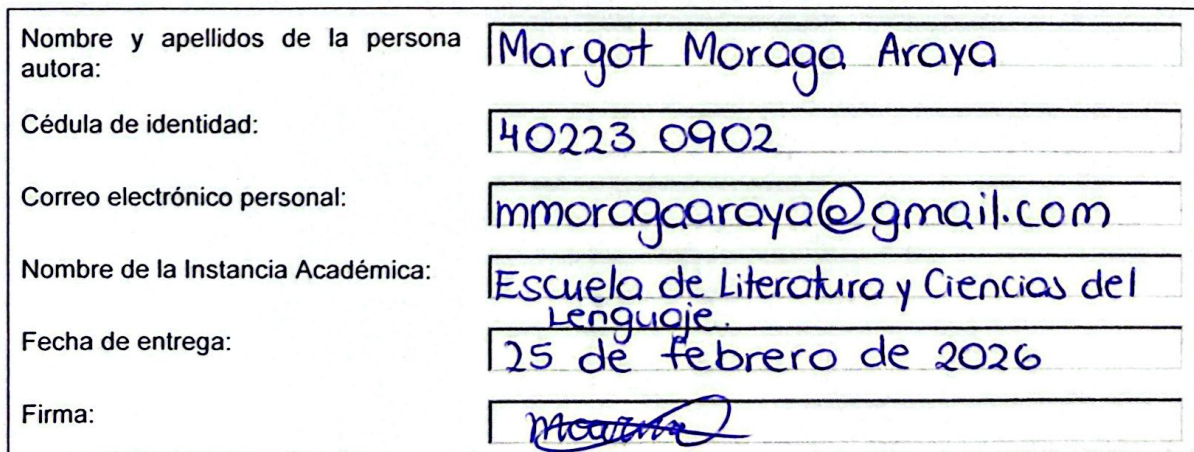 Nombre y apellidos de la persona
autora:
Margot Moraga Araya
Cédula de identidad:
40223 0902
Correo electrónico personal:
mmoragaaraya@gmail.com
Nombre de la Instancia Académica:
Escuela de Literatura y Ciencias del
Lenguaje.
Fecha de entrega:
25 de febrero de 2026
Firma: